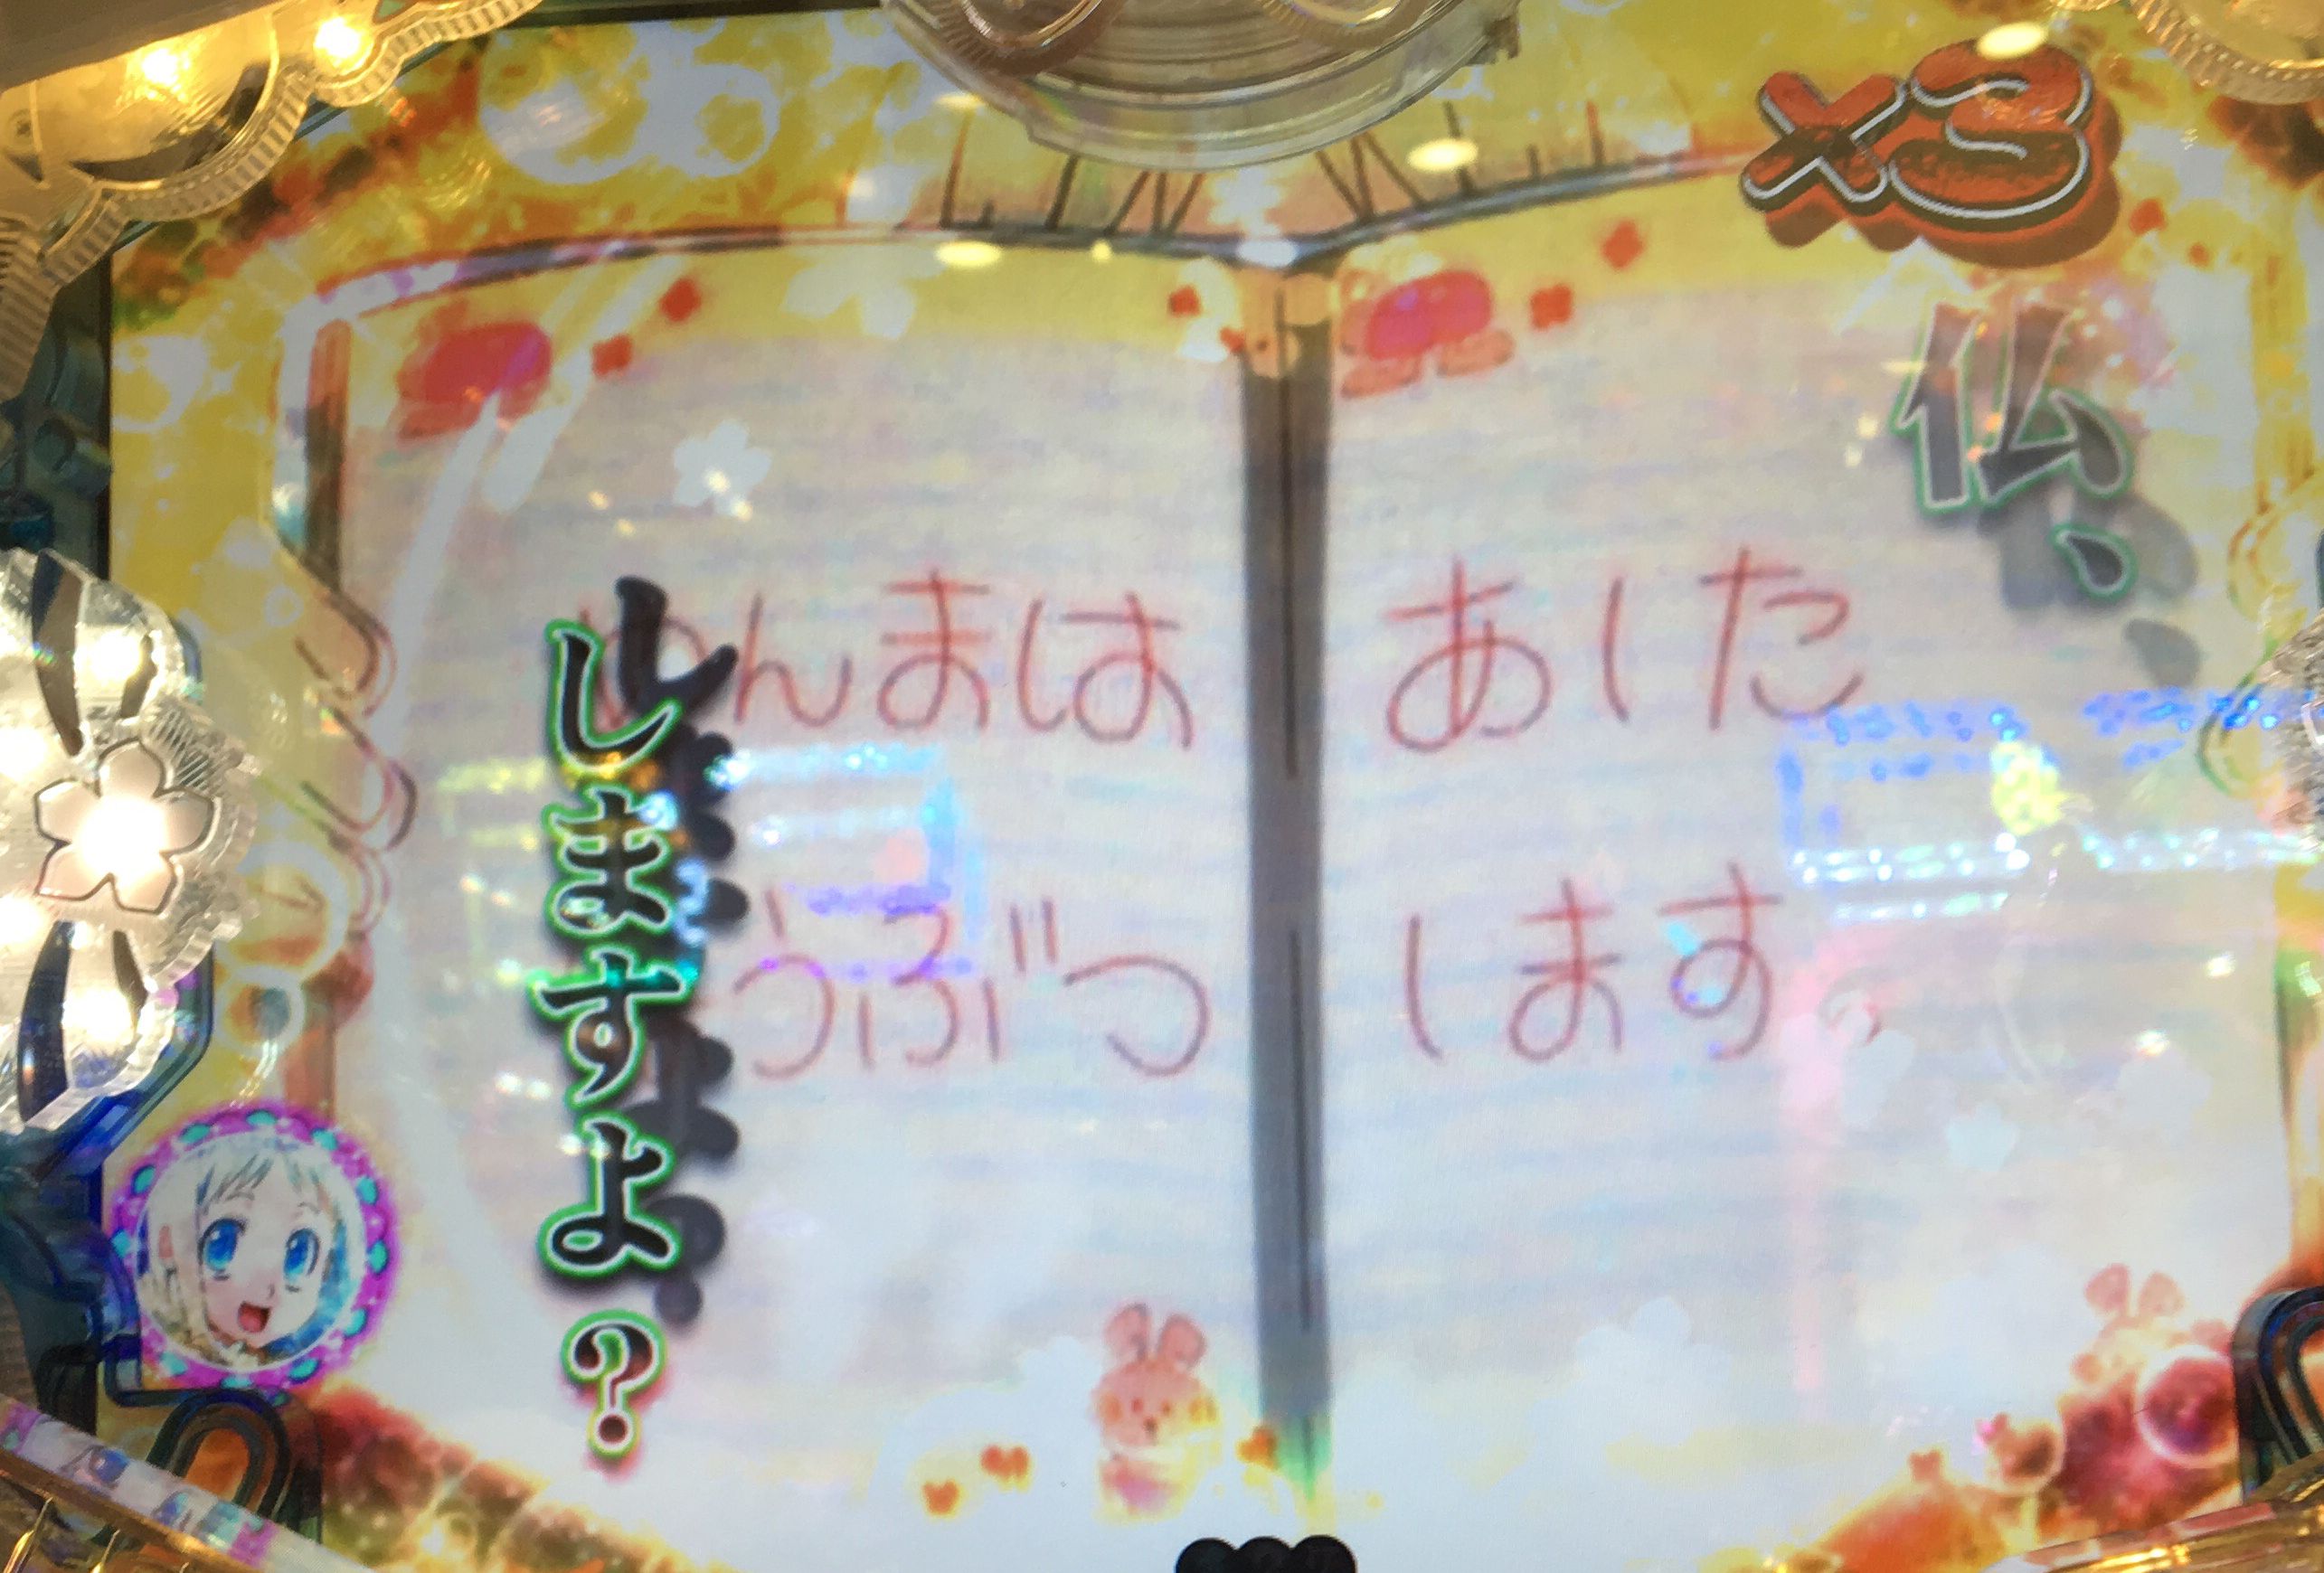 ×3
仏、
しますよ？
んまは あした
うぶつ します。